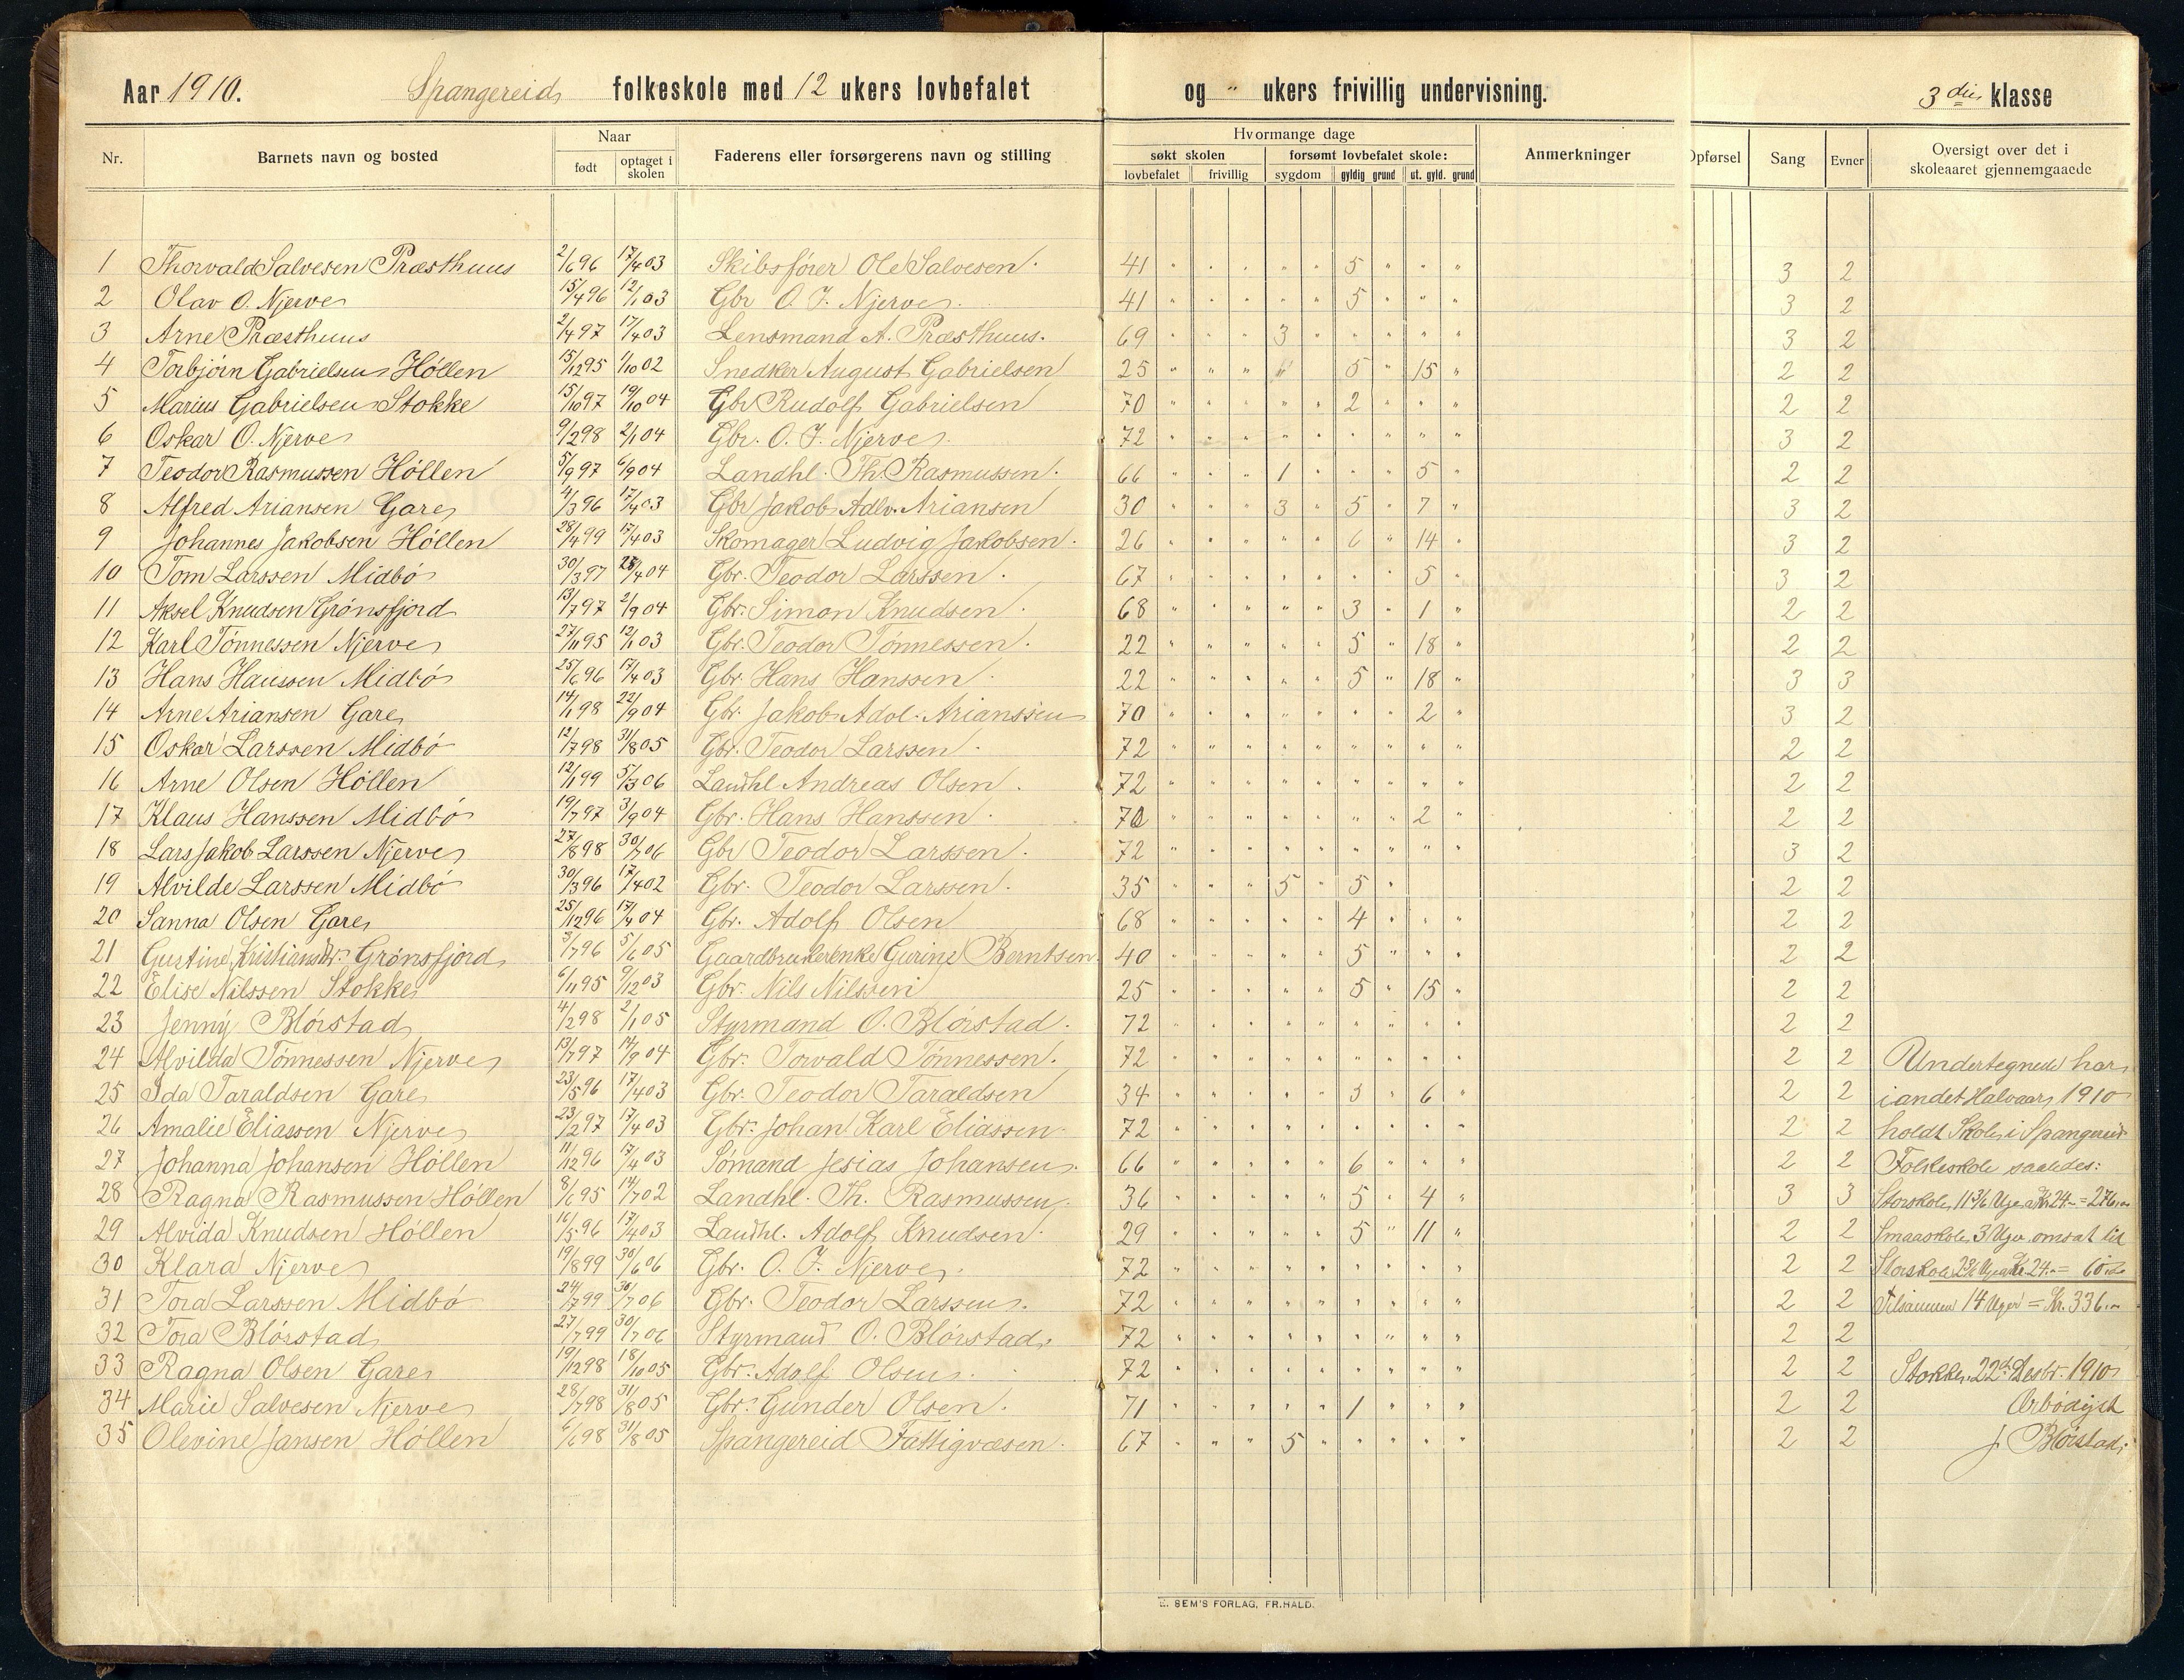 Aar 1910. Spangereids folkeskole med 12 ukers lovbefalet og " ukers frivillig undervisning. 3die klasse
Nr. Barnets navn og bosted Naar født optaget i skolen Faderens eller forsørgerens navn og stilling Hvormange dage søkt skolen lovbefalet frivillig forsømt lovbefalet skole: sygdom gyldig grund ut. gyld. grund Anmerkninger Opførsel Sang Evner Oversigt over det i skoleaaret gjennemgaaede
1 Thorvald Salvesen Præsthuus 2/6 96 17/4 03 Skibsfører Ole Salvesen. 41 " " " " " 5 " " " 3 2
2 Olav O. Njerve 15/4 96 12/1 03 Gbr O. J. Njerve. 41 " " " " " 5 " " " 3 2
3 Arne Præsthuus 2/4 97 17/4 03 Lensmand A. Præsthuus. 69 " " " 3 " " " " " 3 2
4 Torbjörn Gabrielsen Höllen 15/12 95 1/10 02 Snedker August Gabrielsen 25 " " " " 5 " 15 " 2 2
5 Marius Gabrielsen Stokke 15/10 97 19/10 04 Gbr Rudolf Gabrielsen 70 " " " " " 2 " " " 2 2
6 Oskar O. Njerve 9/2 98 2/1 04 Gbr. O. J. Njerve. 72 " " " " " " " " " 3 2
7 Teodor Rasmussen Höllen 5/9 97 6/9 04 Landhl. Th. Rasmussen. 66 " " " 1 " " " 5 " 2 2
8 Alfred Ariansen Gare 4/3 96 17/4 03 Gbr Jakob Adlv. Ariansen 30 " " " 3 " 5 " 7 " 3 2
9 Johannes Jakobsen Höllen 28/4 99 17/4 03 Skomager Ludvig Jakobsen. 26 " " " " " 6 " 14 " 3 2
10 Tom Larssen Midbö 30/3 97 /4 04 Gbr. Teodor Larssen. 67 " " " " " " " 5 " 3 2
11 Aksel Knudsen Grönsfjord 13/7 97 2/9 04 Gbr. Simon Knudsen. 68 " " " " " 3 " 1 " 2 2
12 Karl Tönnessen Njerve 27/11 95 12/1 03 Gbr. Teodor Tönnessen. 22 " " " " " 5 " 18 " 2 2
13 Hans Hanssen Midbö 25/6 96 17/4 03 Gbr. Hans Hanssen. 22 " " " " " 5 " 18 " 3 3
14 Arne Ariansen Gare 14/1 98 22/9 04 Gbr. Jakob Adol. Arianssen 70 " " " " " " " 2 " 3 2
15 Oskar Larssen Midbö 12/7 98 31/8 05 Gbr. Teodor Larssen. 72 " " " " " " " " " 2 2
16 Arne Olsen Höllen 12/1 99 5/3 06 Landhl Andreas Olsen. 72 " " " " " " " " " 2 2
17 Klaus Hanssen Midbö 19/7 97 3/9 04 Gbr. Hans Hanssen. 70 " " " " " " " 2 " 2 2
18 Lars Jakob Larssen Njerve 27/8 98 30/7 06 Gbr Teodor Larssen. 72 " " " " " " " " " 3 2
19 Alvilde Larssen Midbö 30/3 96 17/4 02 Gbr. Teodor Larssen. 35 " " " 5 " 5 " 2 2
20 Sanna Olsen Gare 25/12 96 17/4 04 Gbr. Adolf Olsen 68 " " " " " 4 " " " 2 2
21 Gustine Kristiansdr. Grönsfjord 3/7 96 5/6 05 Gaardbrukerenke Gurine Berntsen. 40 " " " " " 5 " " " 2 2
22 Elise Nilssen Stokke 6/11 95 9/12 03 Gbr. Nils Nilssen 25 " " " " " 5 " 15 " 2 2
23 Jenny Blörstad 4/2 98 2/1 05 Styrmand O. Blörstad. 72 " " " " " " " " " 2 2
24 Alvilda Tönnessen Njerve 13/7 97 14/9 04 Gbr. Torvald Tönnessen. 72 " " " " " " " " " 2 2 Undertegnede har
25 Ida Taraldsen Gare 23/5 96 17/4 03 Gbr. Teodor Taraldsen 34 " " " " " 5 " 6 " 2 2 i andet Halvaar 1910
26 Amalie Eliassen Njerve 23/2 97 17/4 03 Gbr. Johan Karl Eliassen. 72 " " " " " " " " " 2 2 holdt Skole i Spangereid
27 Johanna Johansen Höllen 11/12 96 17/4 03 Sömand Jesias Johansen. 66 " " " " " 6 " " " 2 2 Folkeskole saaledes:
28 Ragna Rasmussen Höllen 8/6 95 14/7 02 Landhl. Th. Rasmussen. 36 " " " " " 5 " 4 " 3 3 Storskole, 11 3/6 Uge a Kr 24.- = 276.-
29 Alvida Knudsen Höllen 16/5 96 17/4 03 Landhl. Adolf Knudsen. 29 " " " " " 5 " 11 " 2 2 Smaaskole, 3 Uger omsat til
30 Klara Njerve 19/8 99 30/6 06 Gbr. O. J. Njerve. 72 " " " " " " " " " 2 2 Storskole 2 3/6 Uge a Kr. 24.- = 60.-
31 Tora Larssen Midbö 24/7 99 30/7 06 Gbr. Teodor Larssen. 72 " " " " " " " " " 2 2 Tilsammen 14 Uger = Kr. 336.-
32 Tora Blörstad 27/7 99 30/7 06 Styrmand O. Blörstad. 72 " " " " " " " " " 2 2
33 Ragna Olsen Gare 19/12 98 18/10 05 Gbr. Adolf Olsen. 72 " " " " " " " " " 2 2 Stokke, 22de Desbr. 1910
34 Marie Salvesen Njerve 28/7 98 31/8 05 Gbr. Gunder Olsen. 71 " " " " " 1 " " " 2 2 Ærbödigst
35 Olevine Jansen Höllen 6/6 98 31/8 05 Spangereid Fattigvæsen. 67 " " " 5 " " " " " 2 2 J. Blörstad.
E. SEM'S FORLAG, FR.HALD.